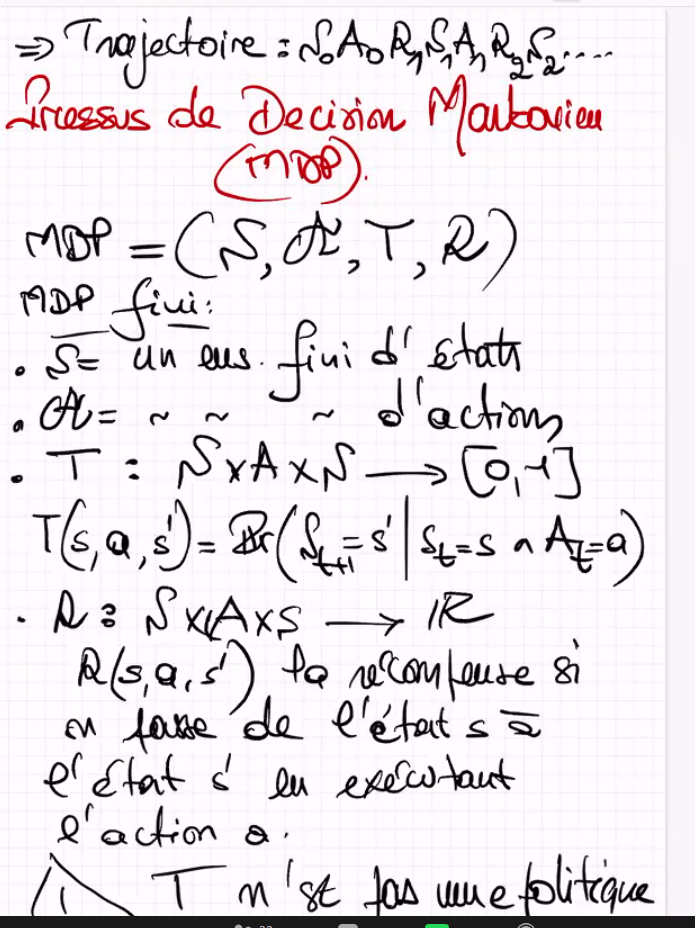 ⇒ Trajectoire : S₀A₀R₁S₁A₁R₂S₂....
Processus de Decision Markovien
(MDP).
MDP = (S, A, T, R)
MDP fini:
. S = un ens. fini d'états
. A = ~ ~ ~ d'actions
. T : S×A×S → [0,1]
T(s,a,s') = Pr(Sₜ₊₁=s' | Sₜ=s ∧ Aₜ=a)
. R : S×A×S → ℝ
R(s,a,s') la récompense si
on passe de l'état s à
l'état s' en exécutant
l'action a.
T n'est pas une politique